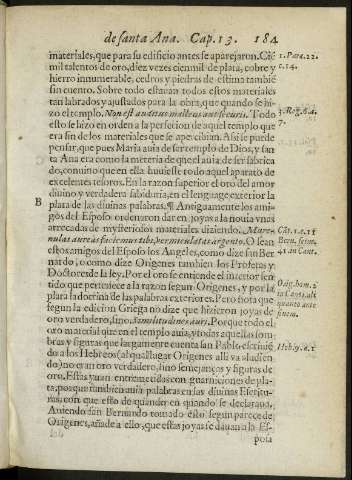 de santa Ana. Cap. 13. 184
materiales, que para su edificio antes se aparejaron. Cie
mil talentos de oro, diez vezes cien mil de plata, cobre y
hierro innumerable, cedros y piedras de estima tambie
sin cuento. Sobre todo estauan todos estos materiales
tan labrados y ajustados para la obra, que quando se hi-
zo el templo. Non est auditus malleus aut securis. Todo
esto se hizo en orden a la perfecion de aquel templo que
era sin de los materiales que se apercibian. Assi se puede
pensar, que pues Maria auia de ser templo de Dios, y san
ta Ana era como la materia de que el auia de ser fabrica
do, conuino que en ella huuiesse todo aquel aparato de
excelentes tesoros. En la razon superior el oro del amor
diuino y verdadera sabiduria, en el lenguage exterior la
plata de las diuinas palabras. ¶ Antiguamente los ami-
B
gos del Esposo ordenaron dar en joyas a la nouia vnas
arrecadas de mysteriosos materiales diziendo. Mure-
nulas aureas faciemus tibi, vermiculatas argento. O sean
estos amigos del Esposo los Angeles, como dize san Ber
nardo, o como dize Origenes tambien los Profetas y
Doctores de la ley. Por el oro se entiende el interior sen-
tido que pertenece a la razon segun Origenes, y por la
plata la dotrina de las palabras exteriores. Pero nota que
segun la edicion Griega no dize que hizieron joyas de
oro verdadero, sino. Similitudines auri. Porque todo el
oro material que en el templo auia, y todas aquellas som-
bras y figuras que largamente cuenta san Pablo escriuie
do a los Hebreos (al qual lugar Origenes alli va aludien-
do) no eran oro verdadero, sino semejanças y figuras de
oro. Estas yuan entremetidas con guarniciones de pla-
ta, porque tambien auia palabras en las diuinas Escritu-
ras, con que esto de quando en quando se declaraua.
Auiendo san Bernardo tomado esto segun parece de
Origenes, añade a ello, que estas joyas se dauan a la Es-
posa
1. Para. 22.
c. 14.
3. Reg. 6. a.
7.
Cāt. 1. c. 11
Bern. serm.
41 in Cant.
Orig. hom. 2
in Cant. alt
quanto ante
finem.
Heb. 9. a. 1